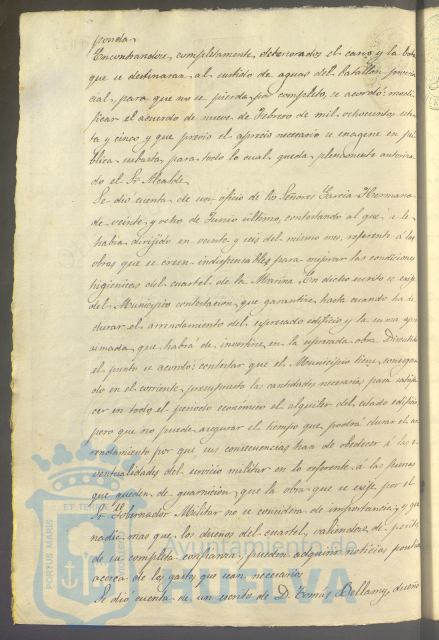 ponda.
Encontrandose, completamente, deteriorados el carro y la bota
que se destinaran al surtido de aguas del batallon provin
cial, para que no se pierda por completo, se acordó: modi
ficar el acuerdo de nueve de Febrero de mil ochocientos seten
ta y cinco y que previo el aprecio necesario se enagene en pú
blica subasta, para todo lo cual queda plenamente autoriza
do el Sr Alcalde.
Se dió cuenta de un oficio de los Señores Garcia Hermanos
de veinte y ocho de Junio último, contestando al que se le
habia dirijido en veinte y seis del mismo mes, referente á las
obras que se creen indispensables para mejorar las condiciones
higienicas del cuartel de la Marina. En dicho escrito se exije
del Municipio contestación, que garantice, hasta cuando ha de
durar el arrendamiento del espresado edificio y la suma apro
simada, que habrá de invertirse en la espresada obra. Discutido
el punto se acordo: contestar que el Municipio tiene consigna
do en el corriente presupuesto las cantidades necesarias para satisfa
cer en todo el periodo económico el alquiler del citado edificio
pero que no puede asegurar el tiempo que podrá durar el ar
rendamiento por que sus consecuencias han de obedecer á las e
ventualidades del servicio militar en lo referente á las fuerzas
que queden de guarnición, que la obra que se exije por el
Sr Gobernador Militar no se considera de importancia, y que
nadie mas que los dueños del cuartel, valiendose de peritos
de su completa confianza pueden adquirir noticias
acerca de los gastos que sean necesarios.
Se dió cuenta de un escrito de D. Tomás Bellamy, dueño
PORTUS MARIS ET TERRAE
Ayuntamiento de
HUELVA